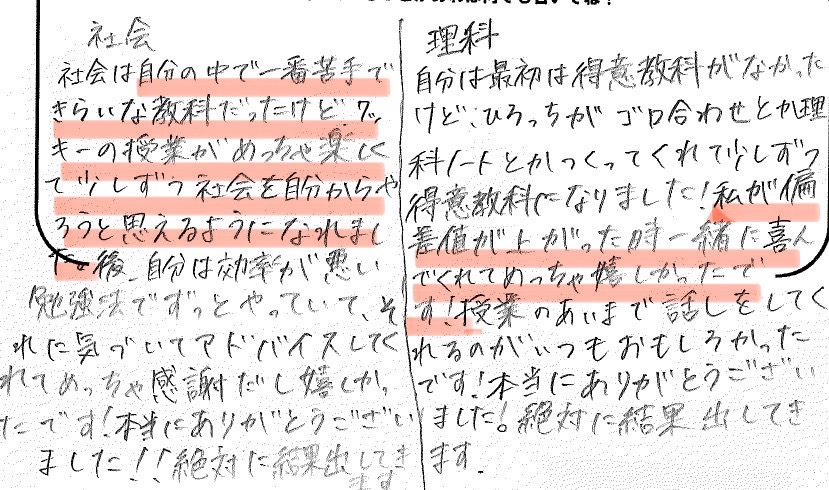 社会
社会は自分の中で一番苦手で
きらいな教科だったけど、ワッ
キーの授業がめっちゃ楽しく
て少しずつ社会を自分からや
ろうと思えるようになれまし
た。後、自分は効率が悪い
勉強法でずっとやっていて、そ
れに気づいてアドバイスしてく
れてめっちゃ感謝だし嬉しかっ
たです!本当にありがとうござい
ました!!絶対に結果出してき
ます
理科
自分は最初は得意教科がなかった
けど、ひろっちが ゴロ合わせとか理
科ノートとかつくってくれて少しずつ
得意教科になりました!私が偏
差値が上がった時一緒に喜ん
でくれてめっちゃ嬉しかったで
す!授業のあいまで話しをしてく
れるのがいつもおもしろかった
です!本当にありがとうござい
ました。絶対に結果出してき
ます.